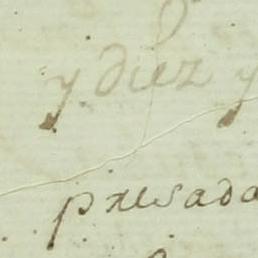 y diez y
presada